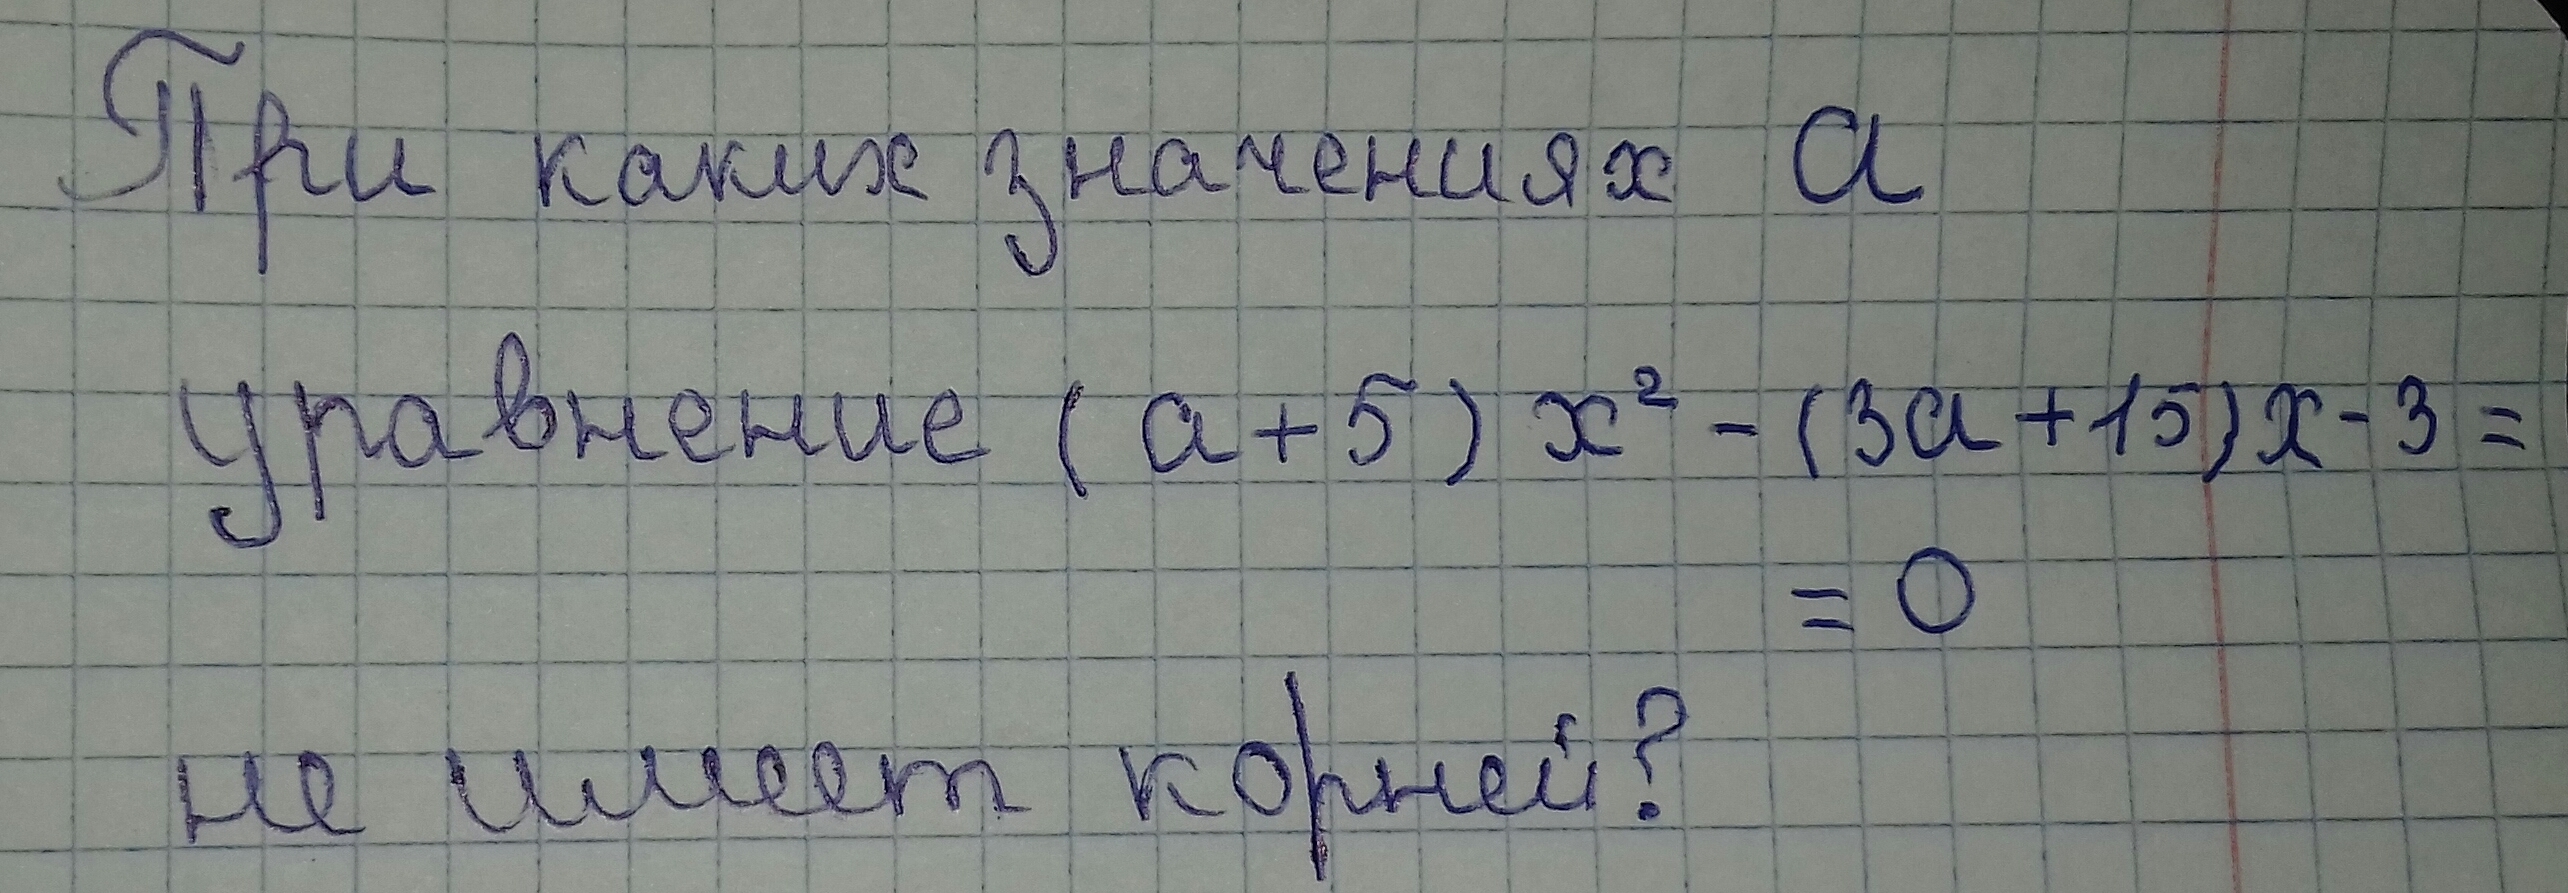 При каких значениях a
уравнение (a+5)x² - (3a+15)x - 3 =
= 0
не имеет корней?